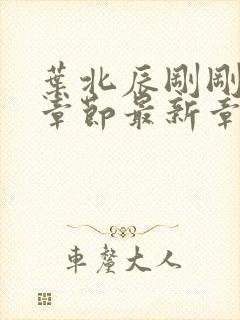 葉北辰剛剛
章節最新章
車釐大人